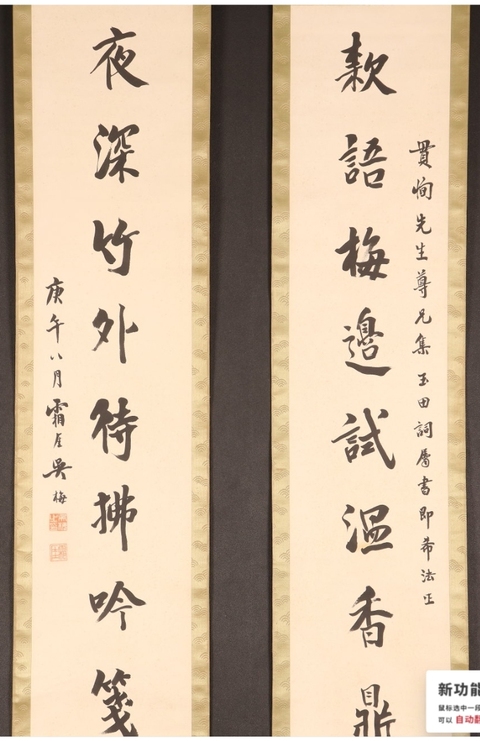 貫恂先生尊兄集玉田詞屬書即希法正
款語梅邊試溫香鼎
夜深竹外待拂吟箋
庚午八月霜厓吳梅
新功能
鼠标选中一段
可以 自动翻